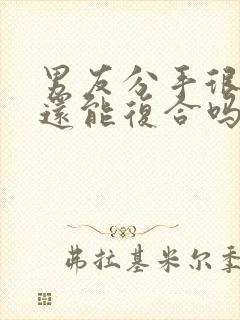 男友分手很
還能復合吗
弗拉基米尔季